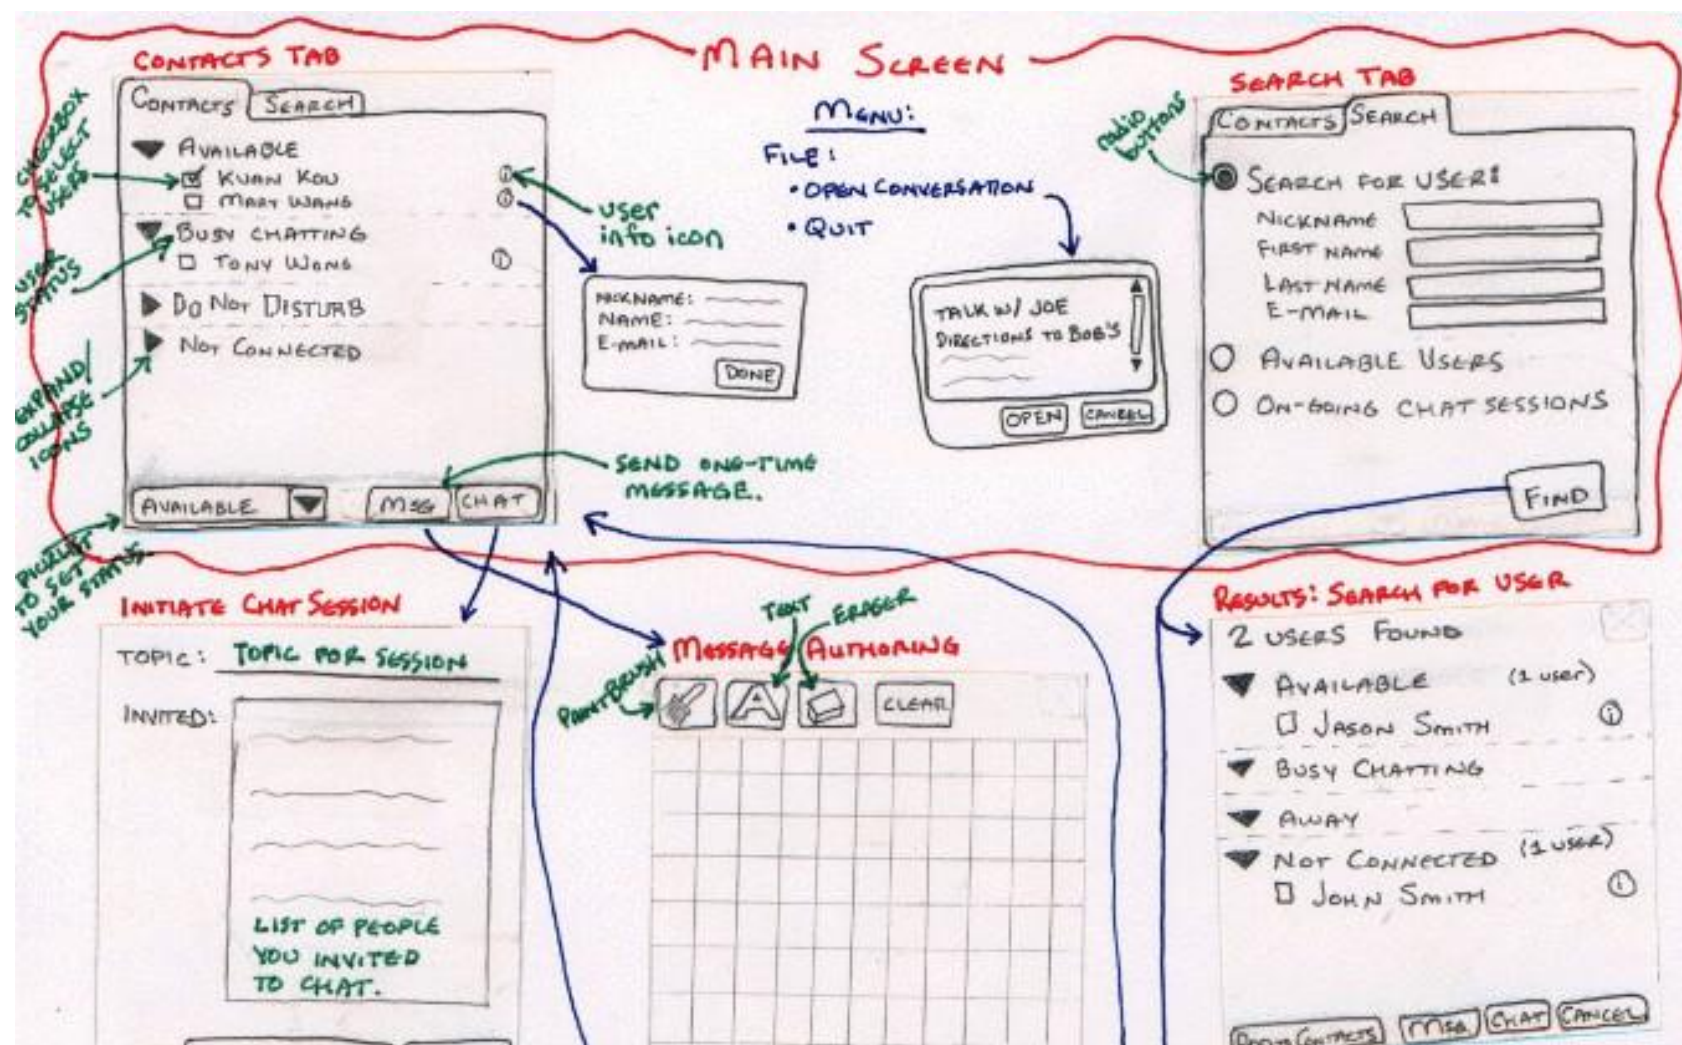 MAIN SCREEN
CONTACTS TAB
CONTACTS SEARCH
AVAILABLE
KUAN KOU
MARY WANG
BUSY CHATTING
TONY WONG
DO NOT DISTURB
NOT CONNECTED
AVAILABLE
MSG CHAT
CHECKBOX
TO SELECT
USERS
USER
STATUS
EXPAND/
COLLAPSE
ICONS
PICKLIST
TO SET
YOUR STATUS
user
info icon
SEND ONE-TIME
MESSAGE.
NICKNAME:
NAME:
E-MAIL:
DONE
MENU:
FILE:
• OPEN CONVERSATION
• QUIT
TALK W/ JOE
DIRECTIONS TO BOB'S
OPEN CANCEL
SEARCH TAB
radio
buttons
CONTACTS SEARCH
SEARCH FOR USER:
NICKNAME
FIRST NAME
LAST NAME
E-MAIL
AVAILABLE USERS
ON-GOING CHAT SESSIONS
FIND
INITIATE CHAT SESSION
TOPIC: TOPIC FOR SESSION
INVITED:
LIST OF PEOPLE
YOU INVITED
TO CHAT.
MESSAGE AUTHORING
PAINTBRUSH
TEXT
ERASER
A
CLEAR
RESULTS: SEARCH FOR USER
2 USERS FOUND
AVAILABLE (1 user)
JASON SMITH
BUSY CHATTING
AWAY
NOT CONNECTED (1 USER)
JOHN SMITH
ADD TO CONTACTS MSG CHAT CANCEL